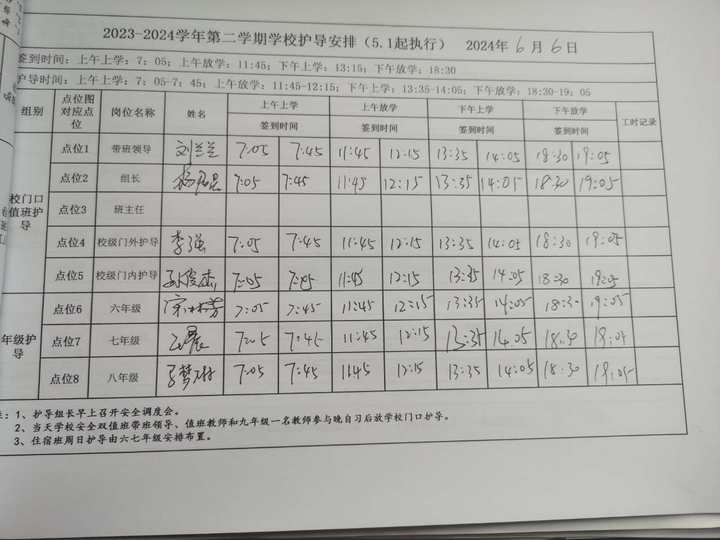 2023-2024学年第二学期学校护导安排（5.1起执行） 2024年 6 月 6 日
签到时间：上午上学：7：05；上午放学：11:45；下午上学：13:15；下午放学：18:30
护导时间：上午上学：7：05-7：45；上午放学：11:45-12:15；下午上学：13:35-14:05；下午放学：18:30-19：05
组别 点位图对应点位 岗位名称 姓名 上午上学 上午放学 下午上学 下午放学 工时记录
签到时间 签到时间 签到时间 签到时间
校门口值班护导
点位1 带班领导 刘兰兰 7:05 7:45 11:45 12:15 13:35 14:05 18:30 19:05
点位2 组长 7:05 7:45 11:45 12:15 13:35 14:05 18:30 19:05
点位3 班主任
点位4 校级门外护导 李强 7:05 7:45 11:45 12:15 13:35 14:05 18:30 19:05
点位5 校级门内护导 7:05 7:45 11:45 12:15 13:35 14:05 18:30 19:05
年级护导
点位6 六年级 宋林芳 7:05 7:45 11:45 12:15 13:35 14:05 18:30 19:05
点位7 七年级 7:05 7:45 11:45 12:15 13:35 14.05 18.30 18.05
点位8 八年级 7:05 7:45 11:45 12:15 13:35 14:05 18:30 19:05
注：1、护导组长早上召开安全调度会。
2、当天学校安全双值班带班领导、值班教师和九年级一名教师参与晚自习后放学校门口护导。
3、住宿班周日护导由六七年级安排布置。